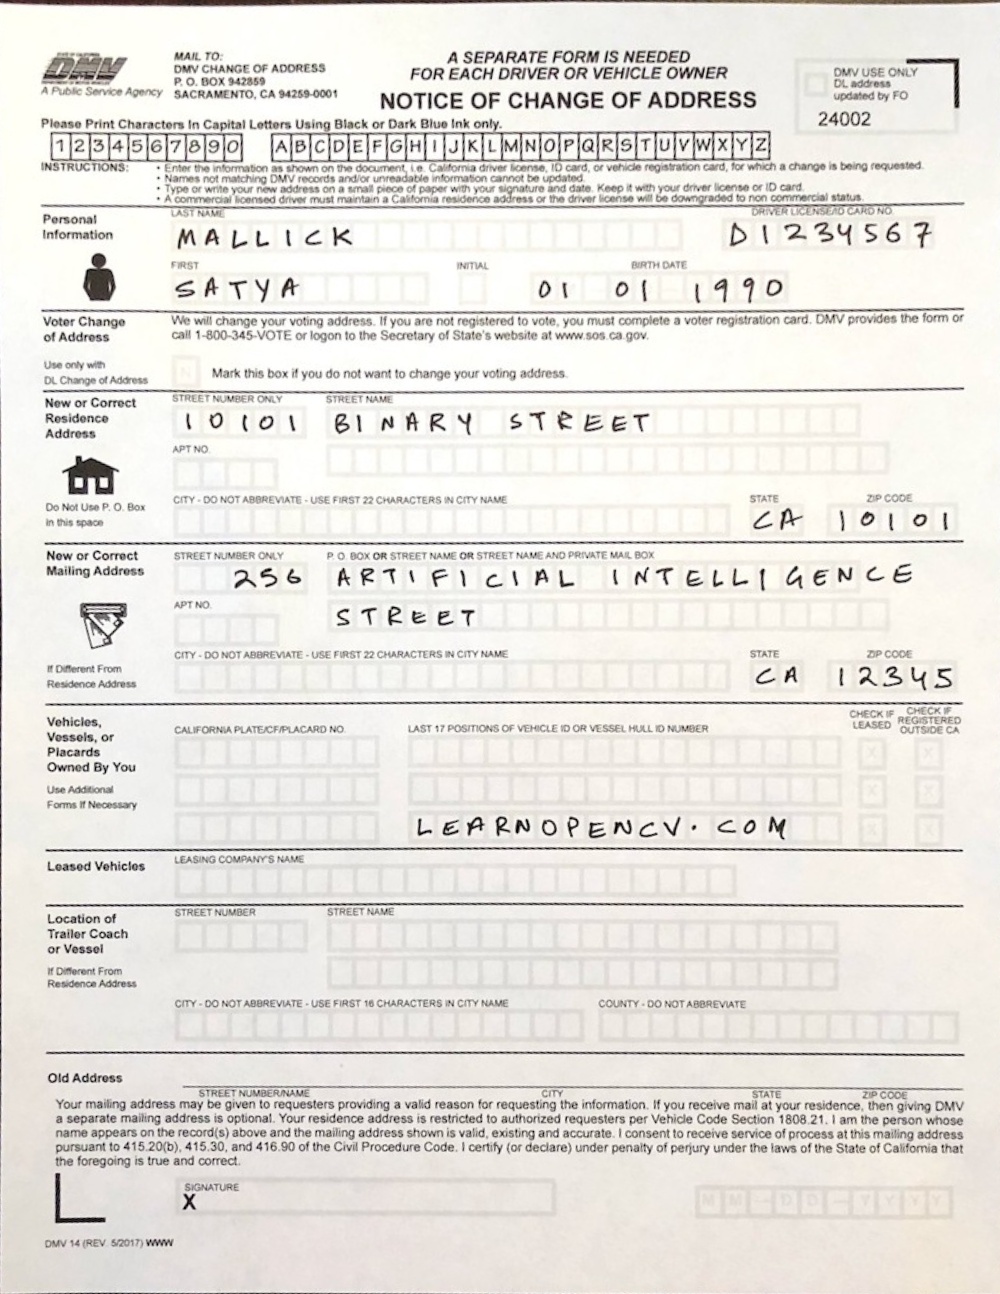 STATE OF CALIFORNIA
DMV
DEPARTMENT OF MOTOR VEHICLES
A Public Service Agency
MAIL TO:
DMV CHANGE OF ADDRESS
P. O. BOX 942859
SACRAMENTO, CA 94259-0001
A SEPARATE FORM IS NEEDED
FOR EACH DRIVER OR VEHICLE OWNER
NOTICE OF CHANGE OF ADDRESS
DMV USE ONLY
DL address
updated by FO
24002
Please Print Characters In Capital Letters Using Black or Dark Blue Ink only.
1 2 3 4 5 6 7 8 9 0 A B C D E F G H I J K L M N O P Q R S T U V W X Y Z
INSTRUCTIONS:
• Enter the information as shown on the document, i.e. California driver license, ID card, or vehicle registration card, for which a change is being requested.
• Names not matching DMV records and/or unreadable information cannot be updated.
• Type or write your new address on a small piece of paper with your signature and date. Keep it with your driver license or ID card.
• A commercial licensed driver must maintain a California residence address or the driver license will be downgraded to non commercial status.
Personal
Information
LAST NAME DRIVER LICENSE/ID CARD NO.
MALLICK D1234567
FIRST INITIAL BIRTH DATE
SATYA 01 01 1990
Voter Change
of Address
We will change your voting address. If you are not registered to vote, you must complete a voter registration card. DMV provides the form or
call 1-800-345-VOTE or logon to the Secretary of State's website at www.sos.ca.gov.
Use only with
DL Change of Address
N Mark this box if you do not want to change your voting address.
New or Correct
Residence
Address
STREET NUMBER ONLY STREET NAME
10101 BINARY STREET
APT NO.
Do Not Use P. O. Box
in this space
CITY - DO NOT ABBREVIATE - USE FIRST 22 CHARACTERS IN CITY NAME STATE ZIP CODE
CA 10101
New or Correct
Mailing Address
STREET NUMBER ONLY P. O. BOX OR STREET NAME OR STREET NAME AND PRIVATE MAIL BOX
256 ARTIFICIAL INTELLIGENCE
APT NO.
STREET
If Different From
Residence Address
CITY - DO NOT ABBREVIATE - USE FIRST 22 CHARACTERS IN CITY NAME STATE ZIP CODE
CA 12345
Vehicles,
Vessels, or
Placards
Owned By You
Use Additional
Forms If Necessary
CALIFORNIA PLATE/CF/PLACARD NO. LAST 17 POSITIONS OF VEHICLE ID OR VESSEL HULL ID NUMBER
CHECK IF
LEASED
CHECK IF
REGISTERED
OUTSIDE CA
X X
X X
LEARNOPENCV.COM X X
Leased Vehicles
LEASING COMPANY'S NAME
Location of
Trailer Coach
or Vessel
STREET NUMBER STREET NAME
If Different From
Residence Address
CITY - DO NOT ABBREVIATE - USE FIRST 16 CHARACTERS IN CITY NAME COUNTY - DO NOT ABBREVIATE
Old Address
STREET NUMBER/NAME CITY STATE ZIP CODE
Your mailing address may be given to requesters providing a valid reason for requesting the information. If you receive mail at your residence, then giving DMV
a separate mailing address is optional. Your residence address is restricted to authorized requesters per Vehicle Code Section 1808.21. I am the person whose
name appears on the record(s) above and the mailing address shown is valid, existing and accurate. I consent to receive service of process at this mailing address
pursuant to 415.20(b), 415.30, and 416.90 of the Civil Procedure Code. I certify (or declare) under penalty of perjury under the laws of the State of California that
the foregoing is true and correct.
SIGNATURE
X
M M - D D - Y Y Y Y
DMV 14 (REV. 5/2017) WWW